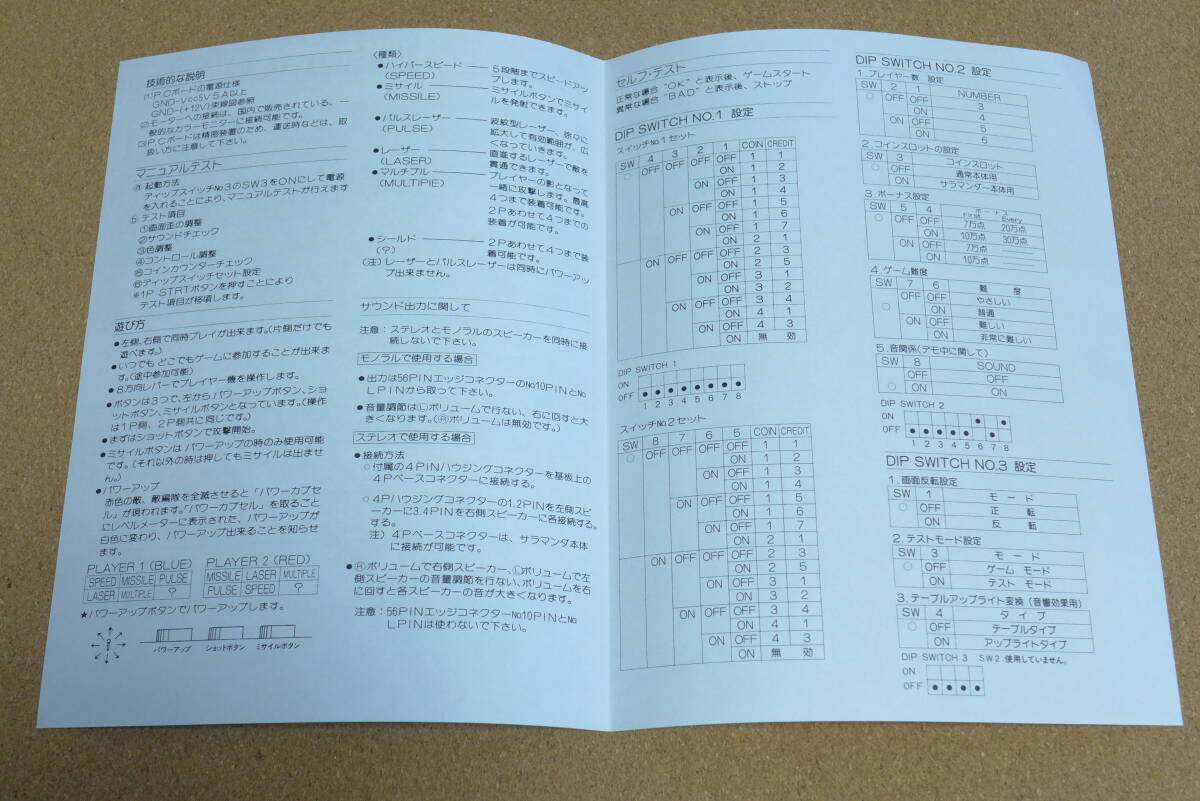 技術的な説明
⑴P.Cボードの電源仕様
GND-Vcc5V 5A以上
GND-(+12V)束線図参照
②モーターへの接続は、国内で販売されている、一
般的なカラーモニターに接続可能です。
③P.Cボードは精密装置のため、運送時などは、取
扱い方に注意して下さい。
マニュアルテスト
ⓐ 起動方法
ディップスイッチNo.3のSW3をONにして電源
を入れることにより、マニュアルテストが行えます
ⓑ テスト項目
①画面歪の調整
②サウンドチェック
③色調整
④コントロール調整
⑤コインカウンターチェック
⑥ディップスイッチセット設定
※1P STRTボタンを押すことにより
テスト項目が移項します。
遊び方
●左側、右側で同時プレイが出来ます。(片側だけでも
遊べます。)
●いつでも どこでもゲームに参加することが出来ま
す。(途中参加可能)
●8方向レバーでプレイヤー機を操作します。
●ボタンは3つで、左からパワーアップボタン、ショ
ットボタン、ミサイルボタンとなっています。(操作
は1P側、2P側共に同じです。)
●まずはショットボタンで攻撃開始。
●ミサイルボタンは パワーアップの時のみ使用可能
です。(それ以外の時は押してもミサイルは出ませ
ん。)
●パワーアップ
赤色の敵、敵編隊を全滅させると「パワーカプセ
ル」が現われます。「パワーカプセル」を取るごと
にレベルメーターに表示された、パワーアップが
白色に変わり、パワーアップ出来ることを知らせ
ます。
PLAYER 1 (BLUE) PLAYER 2 (RED)
SPEED MISSILE PULSE MISSILE LASER MULTIPLE
LASER MULTIPLE ? PULSE SPEED ?
★パワーアップボタンでパワーアップします。
パワーアップ ショットボタン ミサイルボタン
〈種類〉
●ハイパースピード ―― 5段階までスピードアッ
(SPEED) プします。
●ミサイル ―― ミサイルボタンでミサイ
(MISSILE) ルを発射できます。
●パルスレーザー ―― 波紋型レーザー、徐々に
(PULSE) 拡大して有効範囲が、広
くなっていきます。
●レーザー ―― 直進するレーザーで敵を
(LASER) 貫通できます。
●マルチプル ―― プレイヤーの影となって
(MULTIPlE) 一緒に攻撃します。最高
4つまで装着可能です。
2Pあわせて4つまでの
装着が可能です。
●シールド ―― 2Pあわせて4つまで装
(?) 着可能です。
(注) レーザーとパルスレーザーは同時にパワーアッ
プ出来ません。
サウンド出力に関して
注意:ステレオとモノラルのスピーカーを同時に接
続しないで下さい。
モノラルで使用する場合
●出力は56PINエッジコネクターのNo10PINとNo
LPINから取って下さい。
●音量調節はⓁボリュームで行ない、右に回すと大
きくなります。(Ⓡボリュームは無効です。)
ステレオで使用する場合
●接続方法
○付属の4PINハウジングコネクターを基板上の
4Pベースコネクターに接続する。
○4Pハウジングコネクターの1.2PINを左側スピ
ーカーに3.4PINを右側スピーカーに各接続する。
する。
注) 4Pベースコネクターは、サラマンダ本体
に接続が可能です。
●Ⓡボリュームで右側スピーカー、Ⓛボリュームで左
側スピーカーの音量調節を行ない、ボリュームを右
に回すと各スピーカーの音が大きくなります。
注意:56PINエッジコネクターNo10PINとNo
LPINは使わないで下さい。
セルフ・テスト
正常な場合 "OK" と表示後、ゲームスタート
異常な場合 "BAD" と表示後、ストップ
DIP SWITCH NO.1 設定
スイッチNo.1セット
SW 4 3 2 1 COIN CREDIT
○ OFF OFF OFF OFF 1 1
ON 1 2
ON OFF 1 3
ON 1 4
ON OFF OFF 1 5
ON 1 6
ON OFF 1 7
ON 2 1
ON OFF OFF OFF 2 3
ON 2 5
ON OFF 3 1
ON 3 2
ON OFF OFF 3 4
ON 4 1
ON OFF 4 3
ON 無 効
DIP SWITCH 1
ON
OFF ● ● ● ● ● ● ● ●
1 2 3 4 5 6 7 8
スイッチNo.2セット
SW 8 7 6 5 COIN CREDIT
○ OFF OFF OFF OFF 1 1
ON 1 2
ON OFF 1 3
ON 1 4
ON OFF OFF 1 5
ON 1 6
ON OFF 1 7
ON 2 1
ON OFF OFF OFF 2 3
ON 2 5
ON OFF 3 1
ON 3 2
ON OFF OFF 3 4
ON 4 1
ON OFF 4 3
ON 無 効
DIP SWITCH NO.2 設定
1.プレイヤー数 設定
SW 2 1 NUMBER
○ OFF OFF 3
ON 4
ON OFF 5
ON 6
2.コインスロットの設定
SW 3 コインスロット
○ OFF 通常本体用
ON サラマンダー本体用
3.ボーナス設定
SW 5 4 ボーナス
First Every
○ OFF OFF 7万点 20万点
ON 10万点 30万点
ON OFF 7万点 ――
ON 10万点 ――
4.ゲーム難度
SW 7 6 難 度
OFF OFF やさしい
○ ON 普通
ON OFF 難しい
ON 非常に難しい
5.音関係(デモ中に関して)
SW 8 SOUND
OFF OFF
○ ON ON
DIP SWITCH 2
ON ● ●
OFF ● ● ● ● ● ●
1 2 3 4 5 6 7 8
DIP SWITCH NO.3 設定
1.画面反転設定
SW 1 モ ー ド
○ OFF 正 転
ON 反 転
2.テストモード設定
SW 3 モ ー ド
○ OFF ゲーム モード
ON テスト モード
3.テーブルアップライト変換 (音響効果用)
SW 4 タ イ プ
○ OFF テーブルタイプ
ON アップライトタイプ
DIP SWITCH 3 SW2:使用していません。
ON
OFF ● ● ● ●